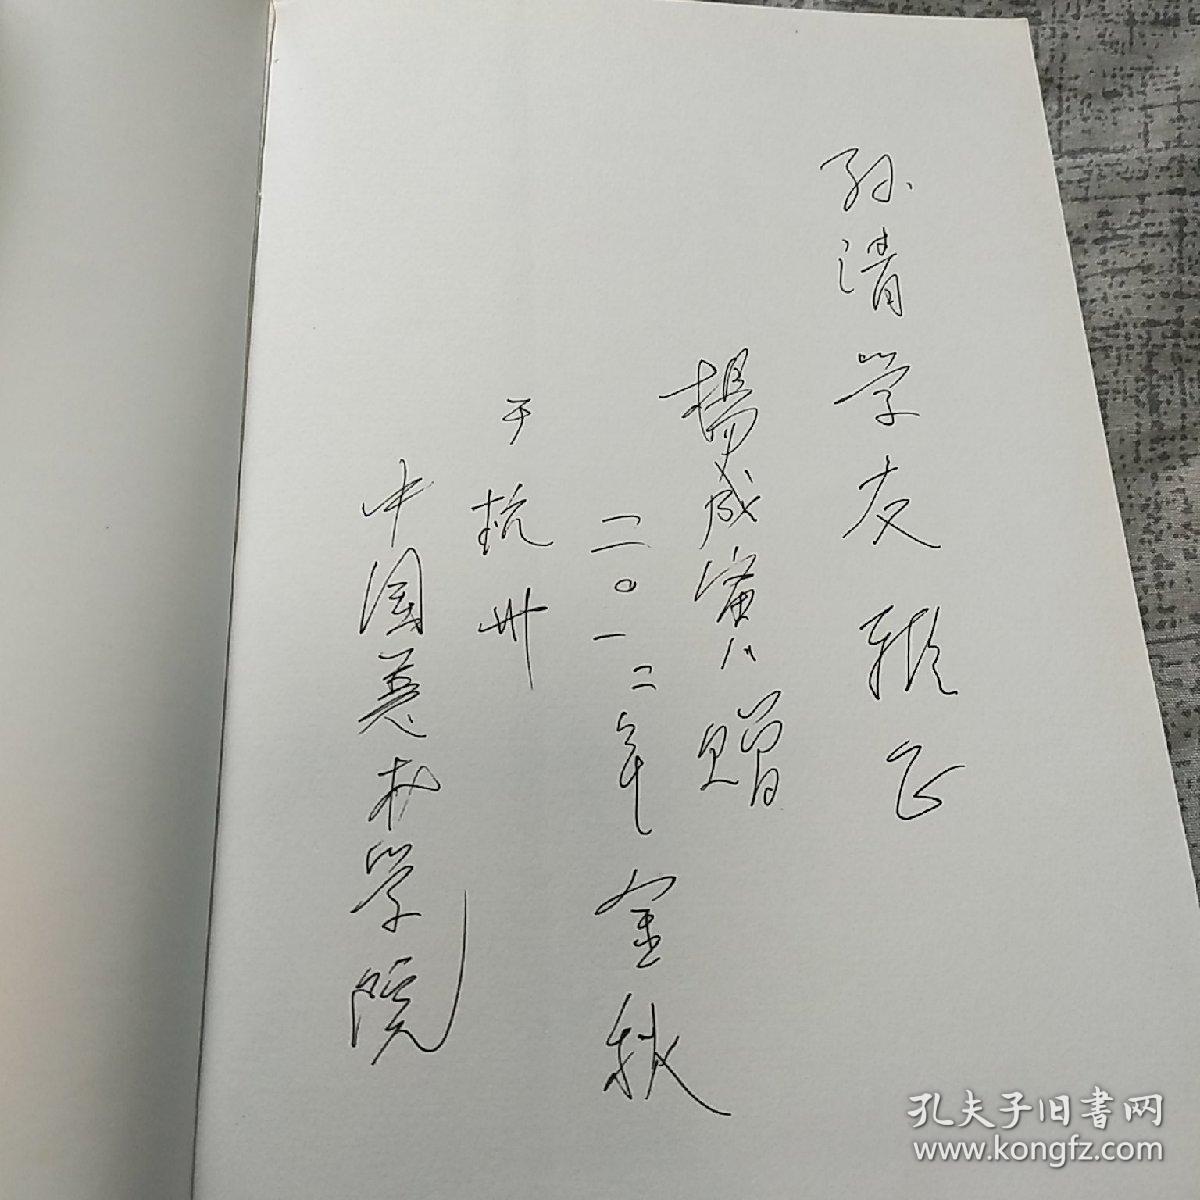 孙清学友雅正
楊成寅赠
二〇一二年金秋
于杭州
中国美术学院
孔夫子旧书网
www.kongfz.com